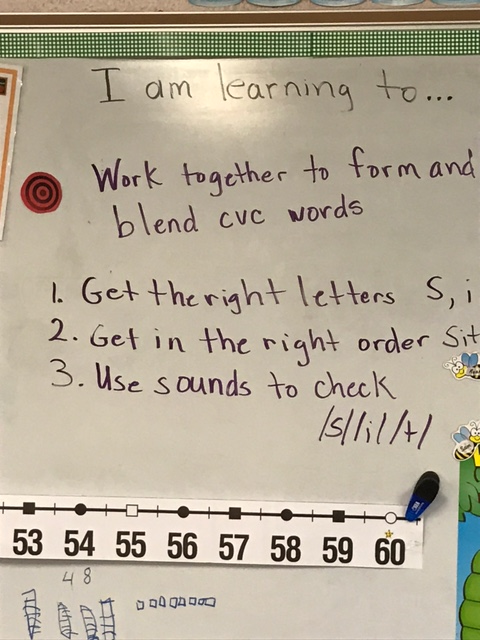 I am learning to...
Work together to form and
blend cvc words
1. Get the right letters S, i
2. Get in the right order Sit
3. Use sounds to check
/s/ /i/ /t/
53 54 55 56 57 58 59 60
48